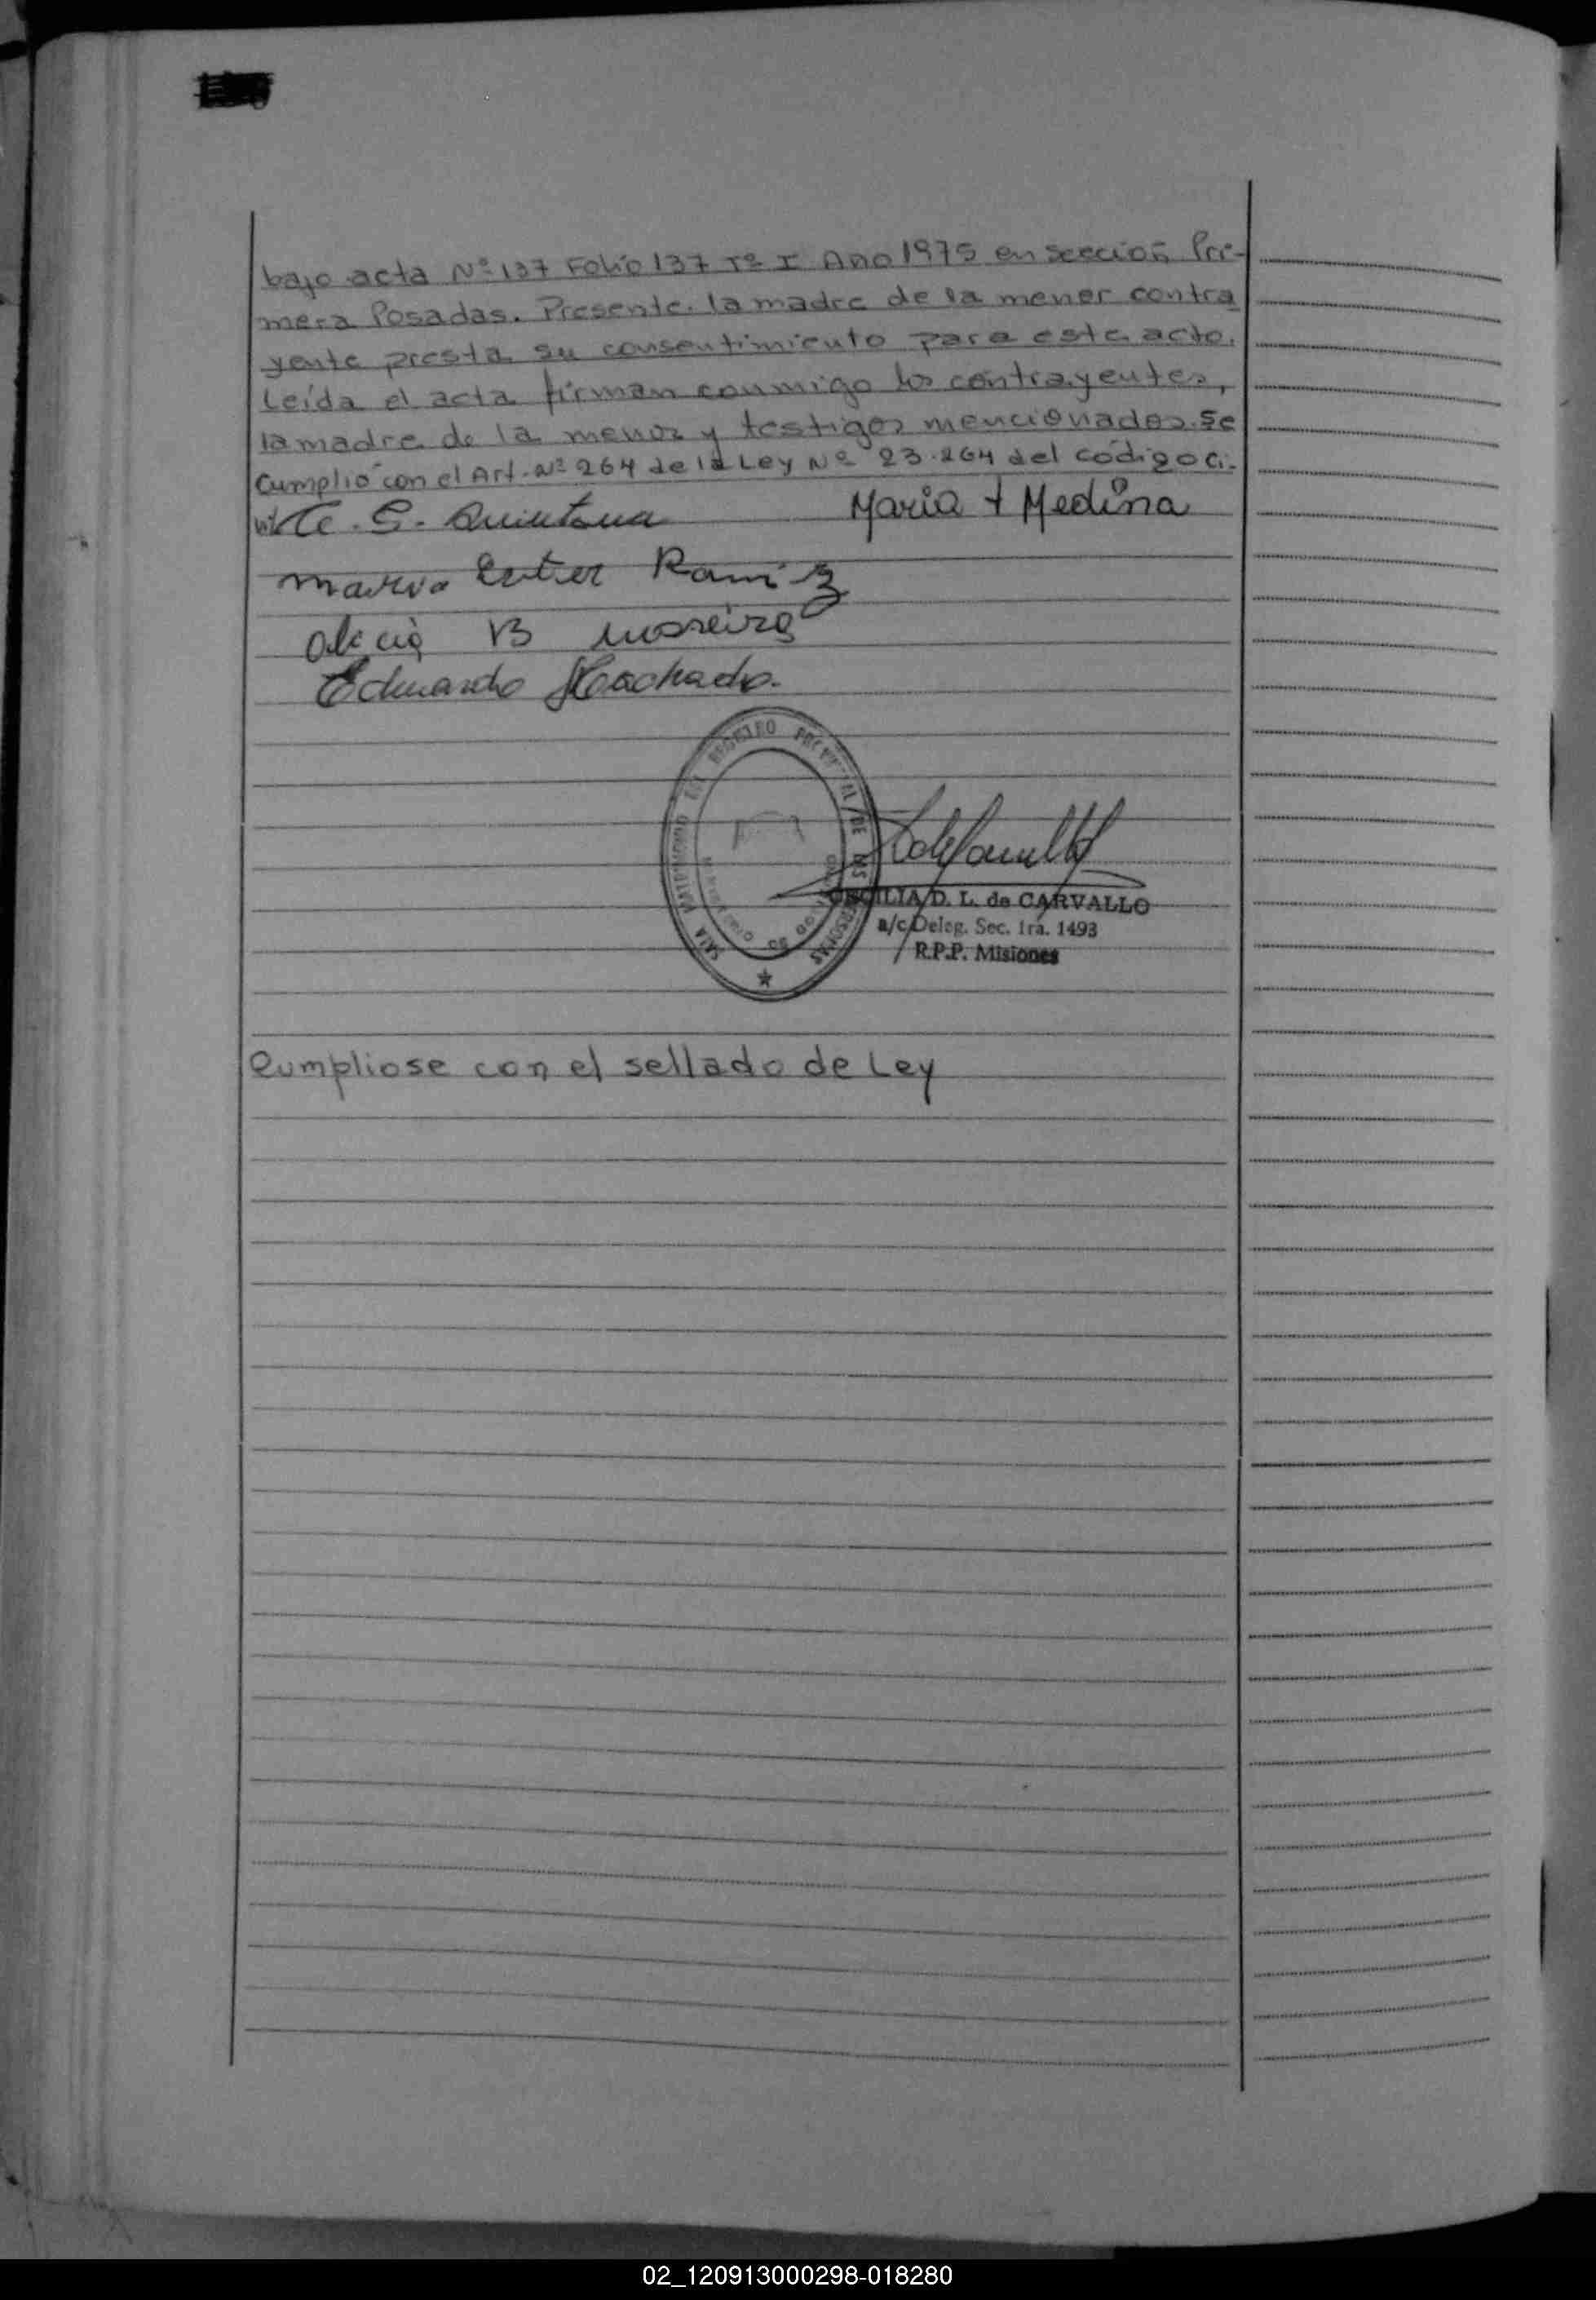 bajo acta Nº 137 Folio 137 Tº I Año 1975 en sección Pri-
mera Posadas. Presente la madre de la menor contra
yente presta su consentimiento para este acto.
Leída el acta firman conmigo los contrayentes,
la madre de la menor y testigos mencionados. Se
Cumplió con el Art. Nº 264 de la Ley Nº 23.264 del código ci-
vil. C. S. Quintana Maria t Medina
Maria Ester Ramirez
Alicia B Moreira
Eduardo Machado.
SALA MATRIMONIO DEL REGISTRO PROVINCIAL DE LAS PERSONAS
CECILIA D. L. de CARVALLO
a/c Deleg. Sec. 1ra. 1493
R.P.P. Misiones
Cumpliose con el sellado de Ley
02_120913000298-018280